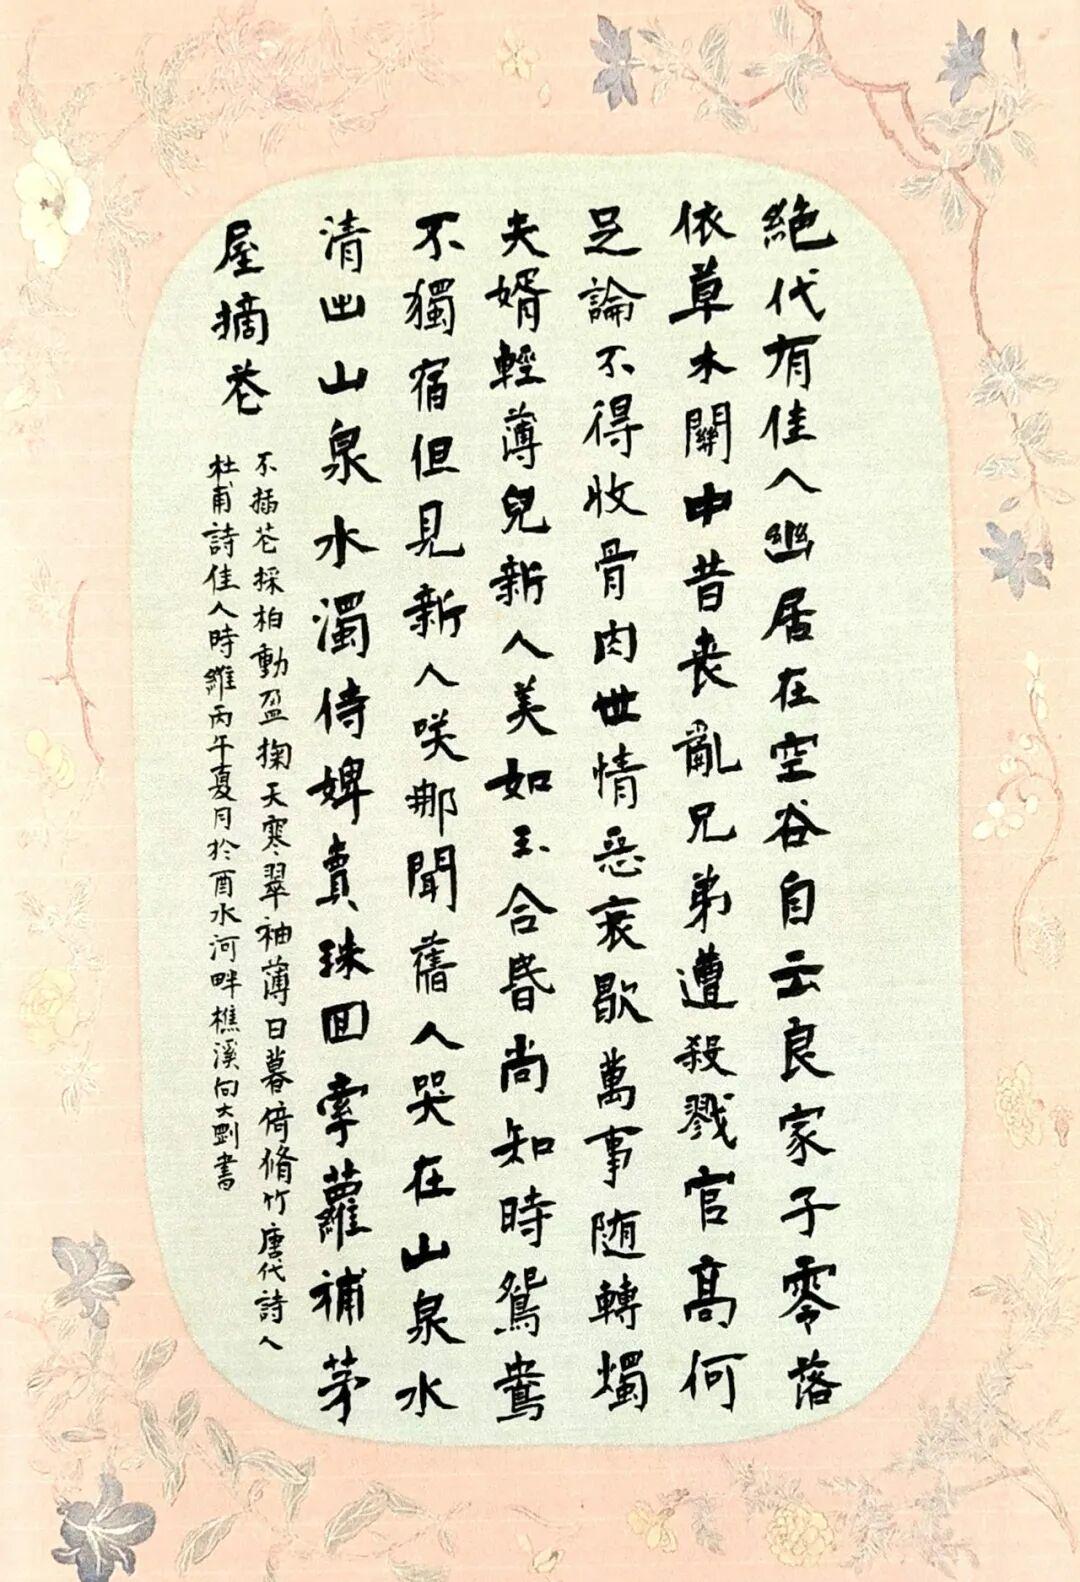 絕代有佳人幽居在空谷自云良家子零落
依草木關中昔喪亂兄弟遭殺戮官高何
足論不得收骨肉世情惡衰歇萬事随轉燭
夫婿輕薄兒新人美如玉合昏尚知時鴛鴦
不獨宿但見新人咲那聞舊人哭在山泉水
清出山泉水濁侍婢賣珠回牽蘿補茅
屋摘花
不插花採柏動盈掬天寒翠袖薄日暮倚脩竹唐代詩人
杜甫詩佳人時維丙午夏月於酉水河畔樵溪向大剛書